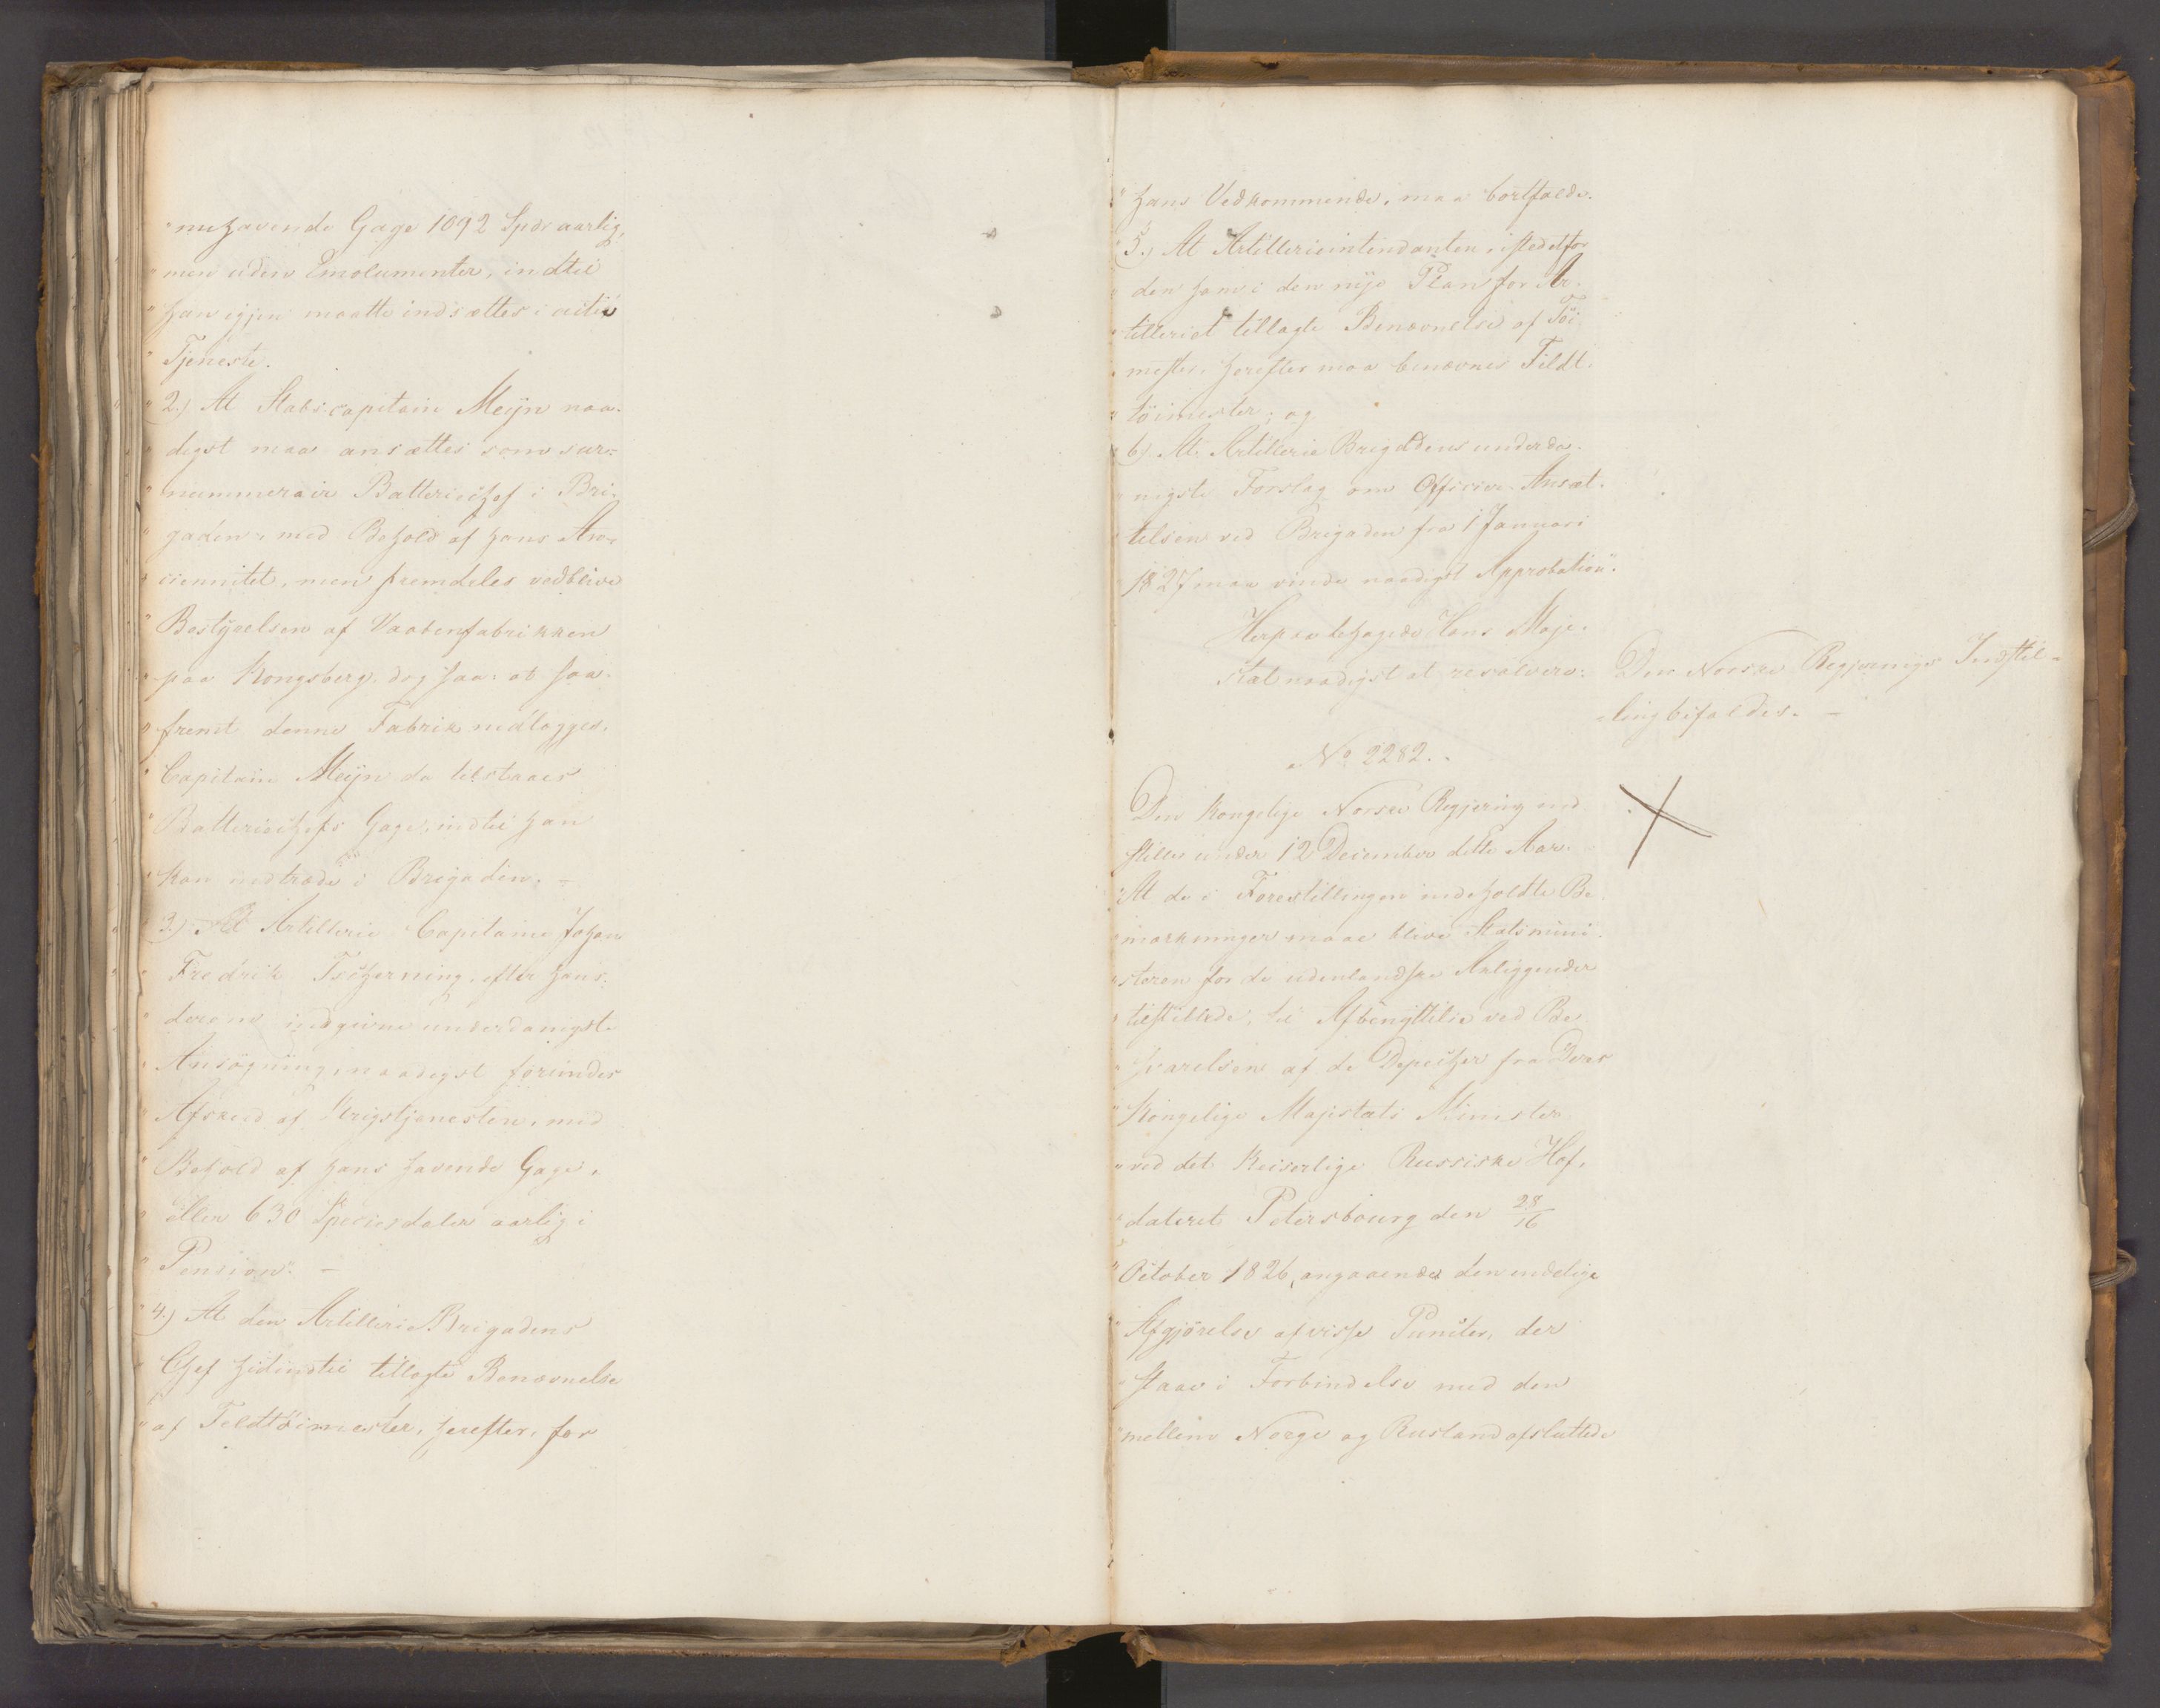 "nuhavende Gage 1092 Spdr aarlig,
"men uden Emolumenter, indtil
"han igjen maatte indsættes i activ
"Tjeneste.
"2.) At Stabscapitain Meÿn naa-
"digst maa ansættes som sur-
"nummerair Batteriechef i Bri-
"gaden, med Behold af hans An-
"ciennitet, men fremdeles vedblive
"Bestyrelsen af Vaabenfabrikken
"paa Kongsberg, dog saa: at saa-
"fremt denne Fabrik nedlægges,
"Capitain Meÿn da tilstaaes
"Batteriechefs Gage, indtil han
"kan indtræde i Brigaden. -
"3.) At Artillerie Capitaine Johan
"Fredrik Tscherning, efter hans
"derom indgivne underdanigste
"Ansøgning, naadigst forundes
"Afskeed af Krigstjenesten, med
"Behold af hans havende Gage,
"eller 630 Speciesdaler aarlig i
"Pension". -
"4.) At den Artillerie Brigadens
"Chef hidindtil tillagte Benævnelse
"af Feldtöimester, herefter, for
"hans Vedkommende, maa bortfalde.
"5.) At Artillerieintendanten, istedetfor
"den ham i den nye Plan for Ar-
"tilleriet tillagte Benævnelse af Töi-
"mester, herefter maa benævnes Feldt-
"töimester; og
"6.) At Artillerie Brigadens underda-
"nigste Forslag om Officier-Ansæt-
"telsen ved Brigaden fra 1 Januari
"1827 maa vinde naadigst Approbation".
Herpaa behagede Hans Maje-
stæt naadigst at resolvere:
Den Norske Regjerings Indstil-
ling bifaldes. -
No 2282.
Den Kongelige Norske Regjering ind-
stiller under 12 December dette Aar:
"At de i Forestillingen indeholdte Be-
"mærkninger maae blive Statsmini-
"steren for de udenlandske Anliggender
"tilstillede, til Afbenyttelse ved Be-
"svarelsen af de Depecher fra Deres
"Kongelige Majestæts Minister
"ved det Keiserlige Russiske Hof,
"dateret Petersbourg den 28/16
"October 1826, angaaende den endelige
"Afgjörelse af visse Puncter, der
"staae i Forbindelse med den
"mellem Norge og Rusland afsluttede